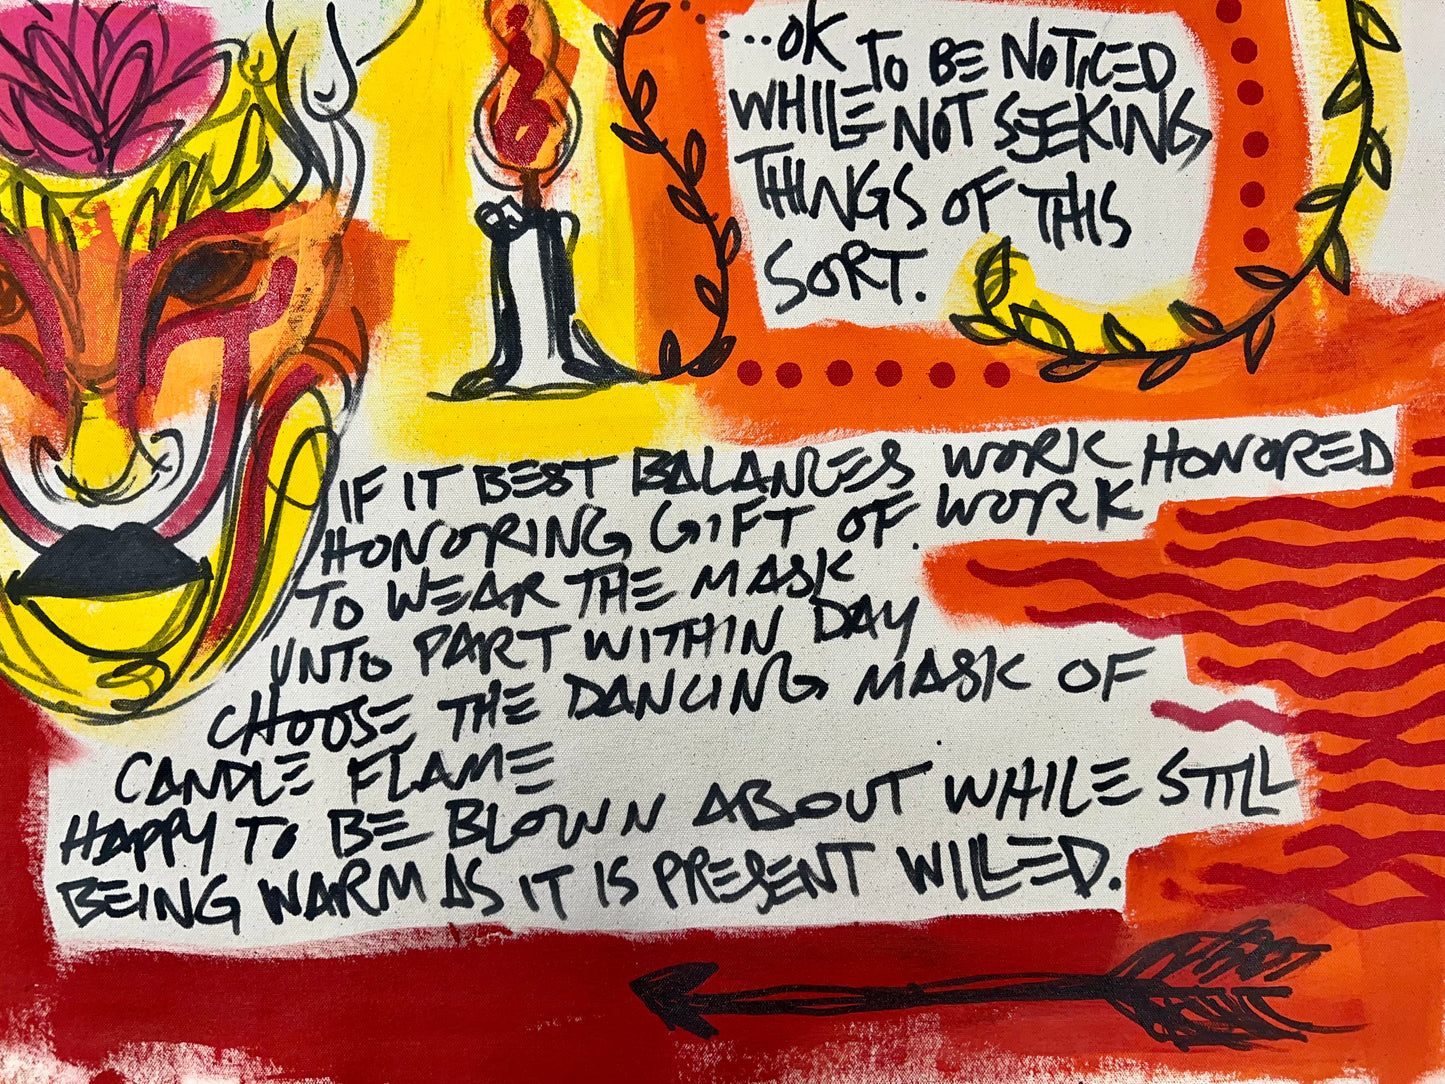 ...OK TO BE NOTICED
WHILE NOT SEEKING
THINGS OF THIS
SORT.
IF IT BEST BALANCES WORK HONORED
HONORING GIFT OF WORK
TO WEAR THE MASK
UNTO PART WITHIN DAY
CHOOSE THE DANCING MASK OF
CANDLE FLAME
HAPPY TO BE BLOWN ABOUT WHILE STILL
BEING WARM AS IT IS PRESENT WILLED.